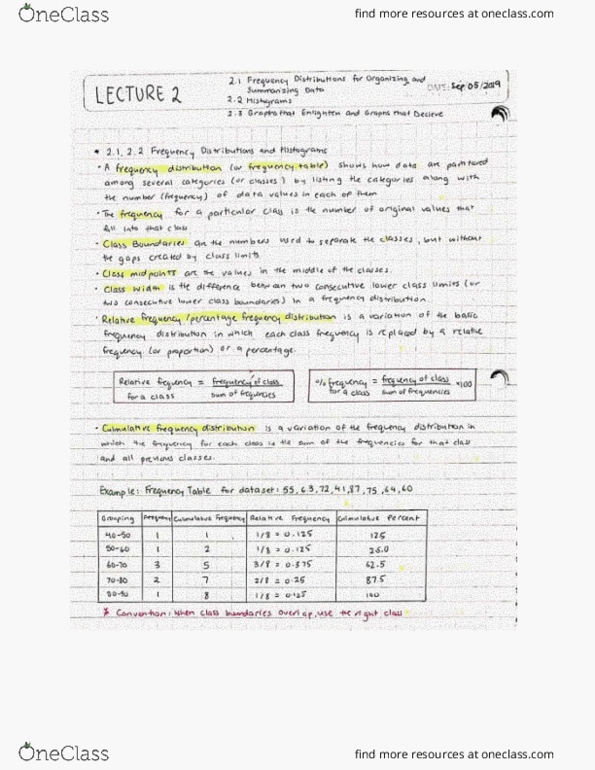 OneClass
find more resources at oneclass.com
LECTURE 2
2.1 Frequency Distributions for Organizing and
Summarizing Data
DATE: Sep 05/2019
2.2 Histograms
2.3 Graphs that Enlighten and Graphs that Decieve
• 2.1, 2.2 Frequency Distributions and Histograms
• A frequency distribution (or frequency table) shows how data are partitoned
among several categories (or classes) by listing the categories along with
the number (frequency) of data values in each of them
• The frequency for a particular class is the number of original values that
fall into that class
• Class Boundaries are the numbers used to separate the classes, but without
the gaps created by class limits
• Class midpoints are the values in the middle of the classes.
• Class width is the difference between two consecutive lower class limits (or
two consecutive lower class boundaries) in a frequency distribution.
• Relative frequency/percentage frequency distribution is a variation of the basic
frequency distribution in which each class frequency is replaced by a relative
frequency (or proportion) or a percentage.
Relative frequency = frequency of class
for a class sum of frequencies
% frequency = frequency of class ×100
for a class sum of frequencies
• Culmulative frequency distribution is a variation of the frequency distribution in
which the frequency for each class is the sum of the frequencies for that class
and all previous classes.
Example: Frequency Table for dataset: 55, 63, 72, 41, 87, 75, 64, 60
Grouping Frequency Culmulative Frequency Relative Frequency Culmulative Percent
40-50 1 1 1/8 = 0.125 12.5
50-60 1 2 1/8 = 0.125 25.0
60-70 3 5 3/8 = 0.375 62.5
70-80 2 7 2/8 = 0.25 87.5
80-90 1 8 1/8 = 0.125 100
* Convention: When class boundaries overlap, use the right class
OneClass
find more resources at oneclass.com